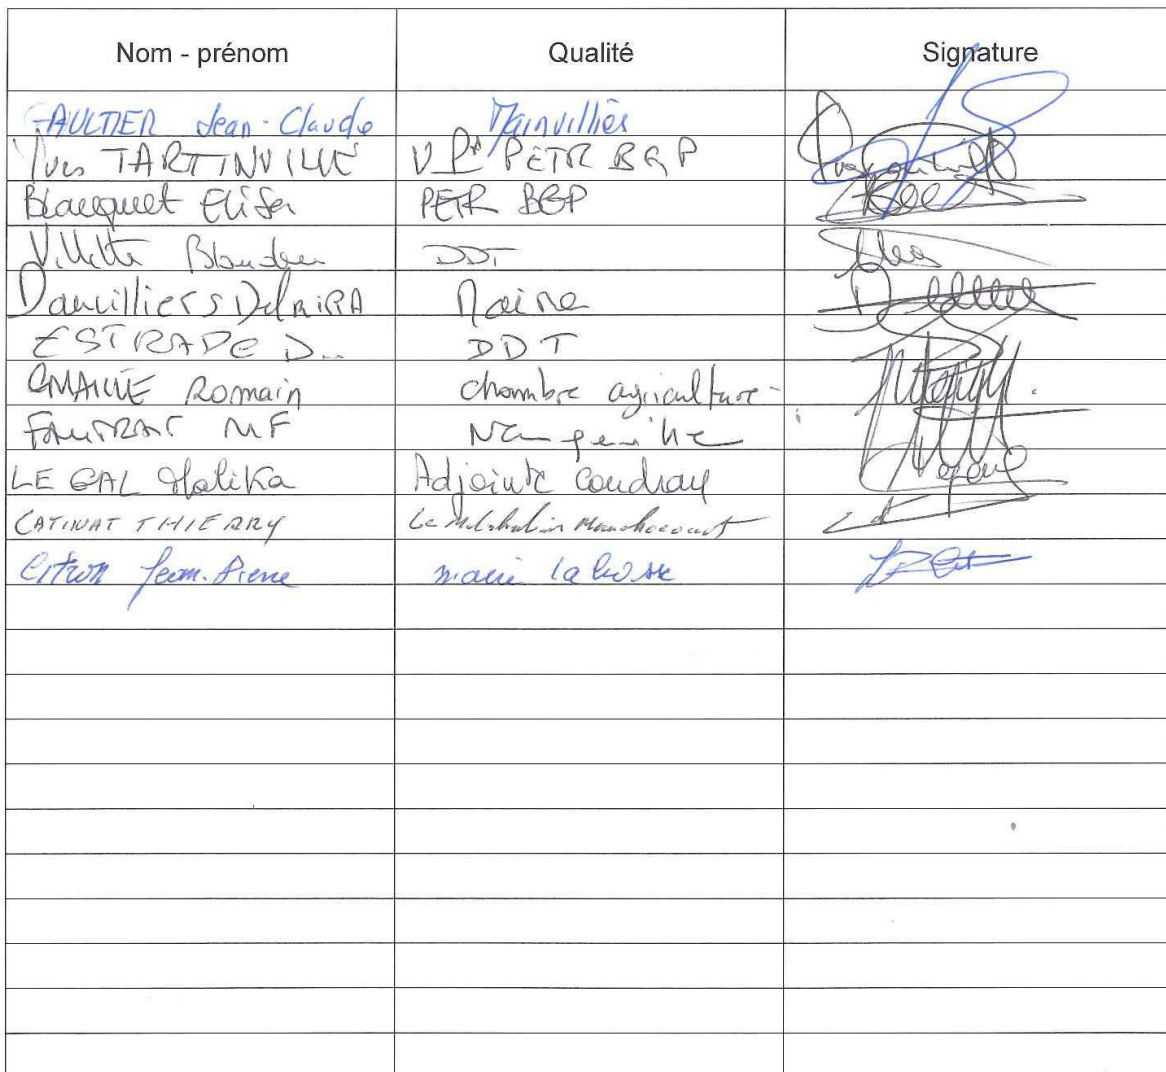 Nom - prénom Qualité Signature
GAULTIER Jean-Claude Mainvilliers
Yves TARTINVILLE V Pt PETR BGP
Blacquet Elisa PETR BGP
Villette Blandine DDT
Dauvilliers Delmira Maire
ESTRADE D... DDT
Romain chambre agriculture
FAUTRAT MF Nangeville
LE GAL Malika Adjointe Coudray
CATINAT THIERRY Le Malesherbois Manchecourt
Citron Jean-Pierre maire la brosse